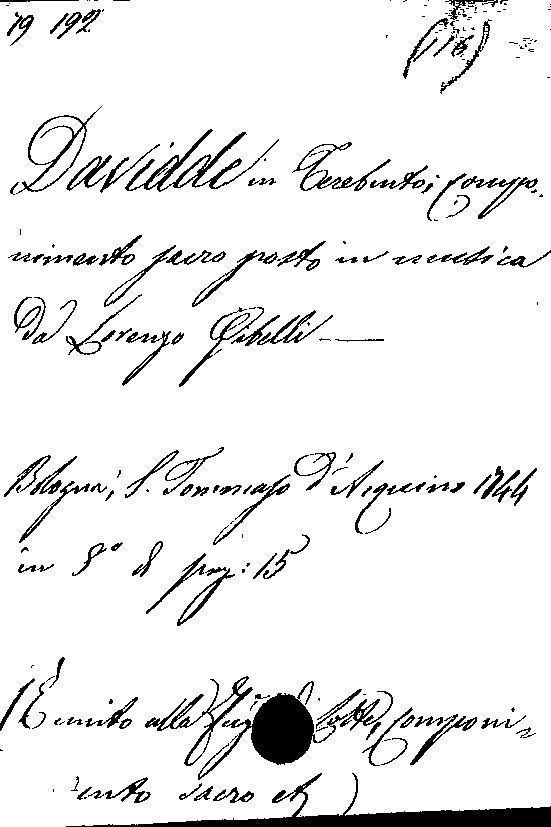 19 192
(116)
Davidde in Terebinto; compo-
nimento sacro posto in musica
da Lorenzo Gibelli —
Bologna, S. Tommaso d'Aquino 1744
in 8° di pag: 15
(È unito alla Lotte, componi-
mento sacro etc)